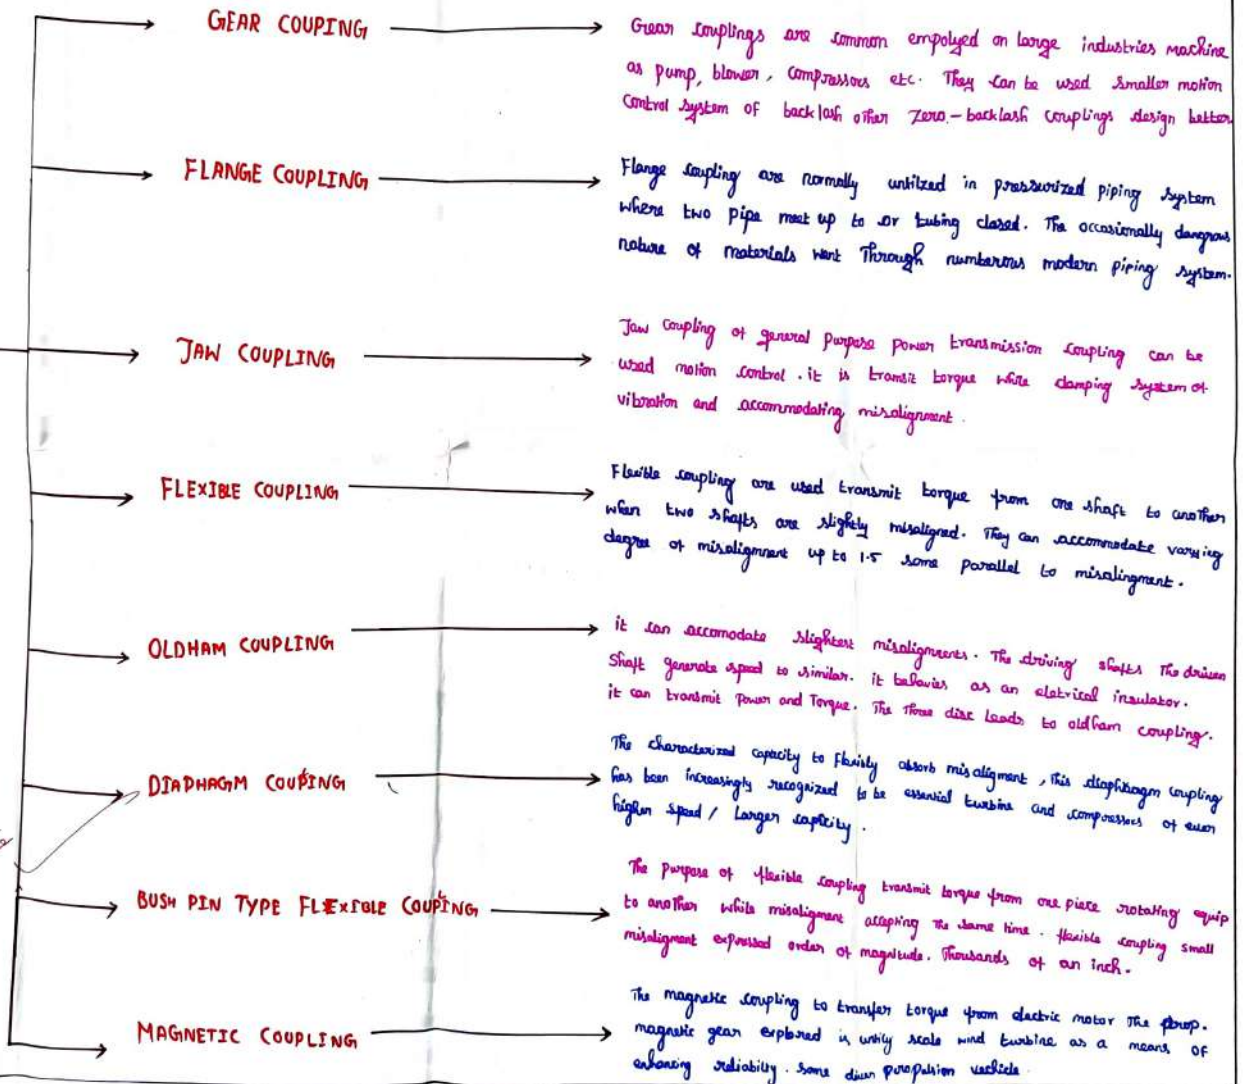 GEAR COUPING
Gear couplings are common empolyed on large industries machine
as pump, blower, compressors etc. They can be used smaller motion
control system of backlash other zero-backlash couplings design better
FLANGE COUPLING
Flange coupling are normally untilzed in pressurized piping system
where two pipe meet up to or tubing closed. The occasionally dangrous
nature of materials went Through numberous modern piping system.
JAW COUPLING
Jaw coupling of general purpose power transmission coupling can be
used motion control. it is transit torque while damping system of
vibration and accommodating misalignment.
FLEXIBLE COUPLING
Flexible coupling are used transmit torque from one shaft to another
when two shafts are slightly misaligned. They can accommodate varying
degree of misalignment up to 1.5 some parallel to misalingment.
OLDHAM COUPLING
it can accomodate slightest misalignments. The driving shafts The driven
Shaft generate speed to similar. it behavies as an eletrical insulator.
it can transmit Power and Torque. The Three disc leads to oldham coupling.
DIAPHAGM COUPING
The characterized capacity to flexibly absorb misaligment, this diaphragm coupling
has been increasingly recognized to be essential turbine and compressors of even
higher speed / Larger capicity.
BUSH PIN TYPE FLEXIBLE COUPLING
The purpose of flexible coupling transmit torque from one piece rotating equip
to another while misaligment accepting The same time. flexible coupling small
misaligment expressed order of magnitude. Thousands of an inch.
MAGNETIC COUPLING
The magnetic coupling to transfer torque from electric motor The prop.
magnetic gear explored is untily scale wind turbine as a means of
enhancing reliability. Some diver puropulsion vechicle